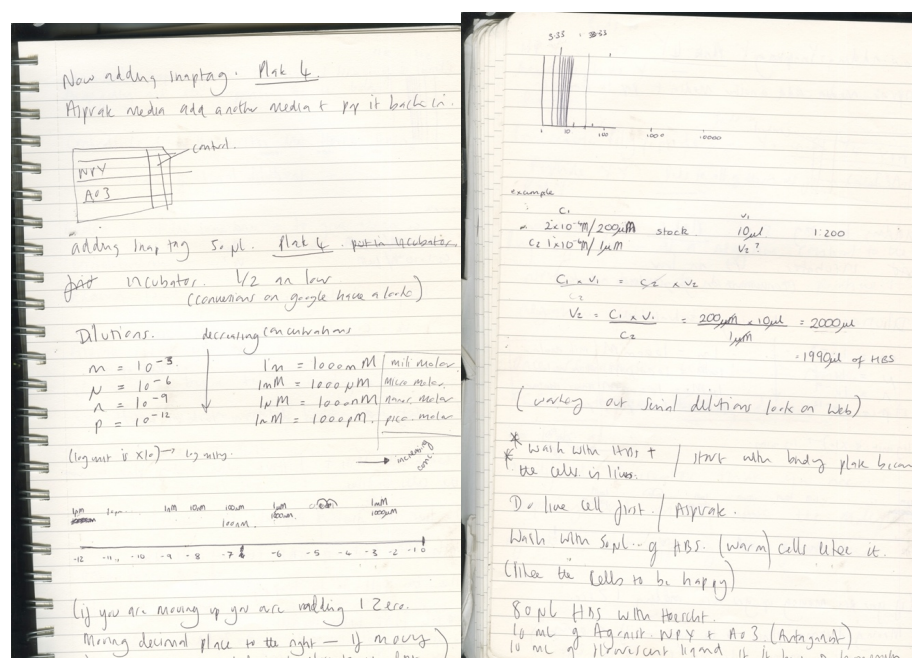 Now adding snaptag. Plate 4.
Aspirate media add another media + pop it back in.
control.
NPY
A03
adding snap tag 50 µl. Plate 4. put in incubator.
incubator. 1/2 an hour
(conversions on google have a look)
Dilutions. decreasing concentrations
m = 10⁻³ 1m = 1000mM mili molar
µ = 10⁻⁶ 1mM = 1000µM micro molar
n = 10⁻⁹ 1µM = 1000nM nano molar
p = 10⁻¹² 1nM = 1000pM. pico molar
(log unit is x10) → log
increasing conc.
1pM 1nM 10nM 100nM 1µM 1mM
100nM. 1000nm. 1000µm
-12 -11 -10 -9 -8 -7 -6 -5 -4 -3 -2 -1 0
(if you are moving up you are adding 1 zero.
Moving decimal place to the right — if moving
5.33
1 10 100 1000 10000
example
C₁ V₁
2x10⁻⁴M/200µM stock 10µl 1:200
C₂ 1x10⁻⁶M/1µM V₂?
C₁ x V₁ = C₂ x V₂
V₂ = C₁ x V₁ / C₂ = 200µM x 10µl / 1µM = 2000µl
= 1990µl of HBS
(working out serial dilutions look on Web)
* wash with HBS + / start with binding plate because
* the cells is live.
Do live cell first. / Aspirate.
Wash with 50µl of HBS. (warm) cells likes it.
(likes the cells to be happy)
80µl HBS with Hoechst.
10 mL of Agonist. NPY + A03. (Antagonist)
10 mL of fluorescent ligand